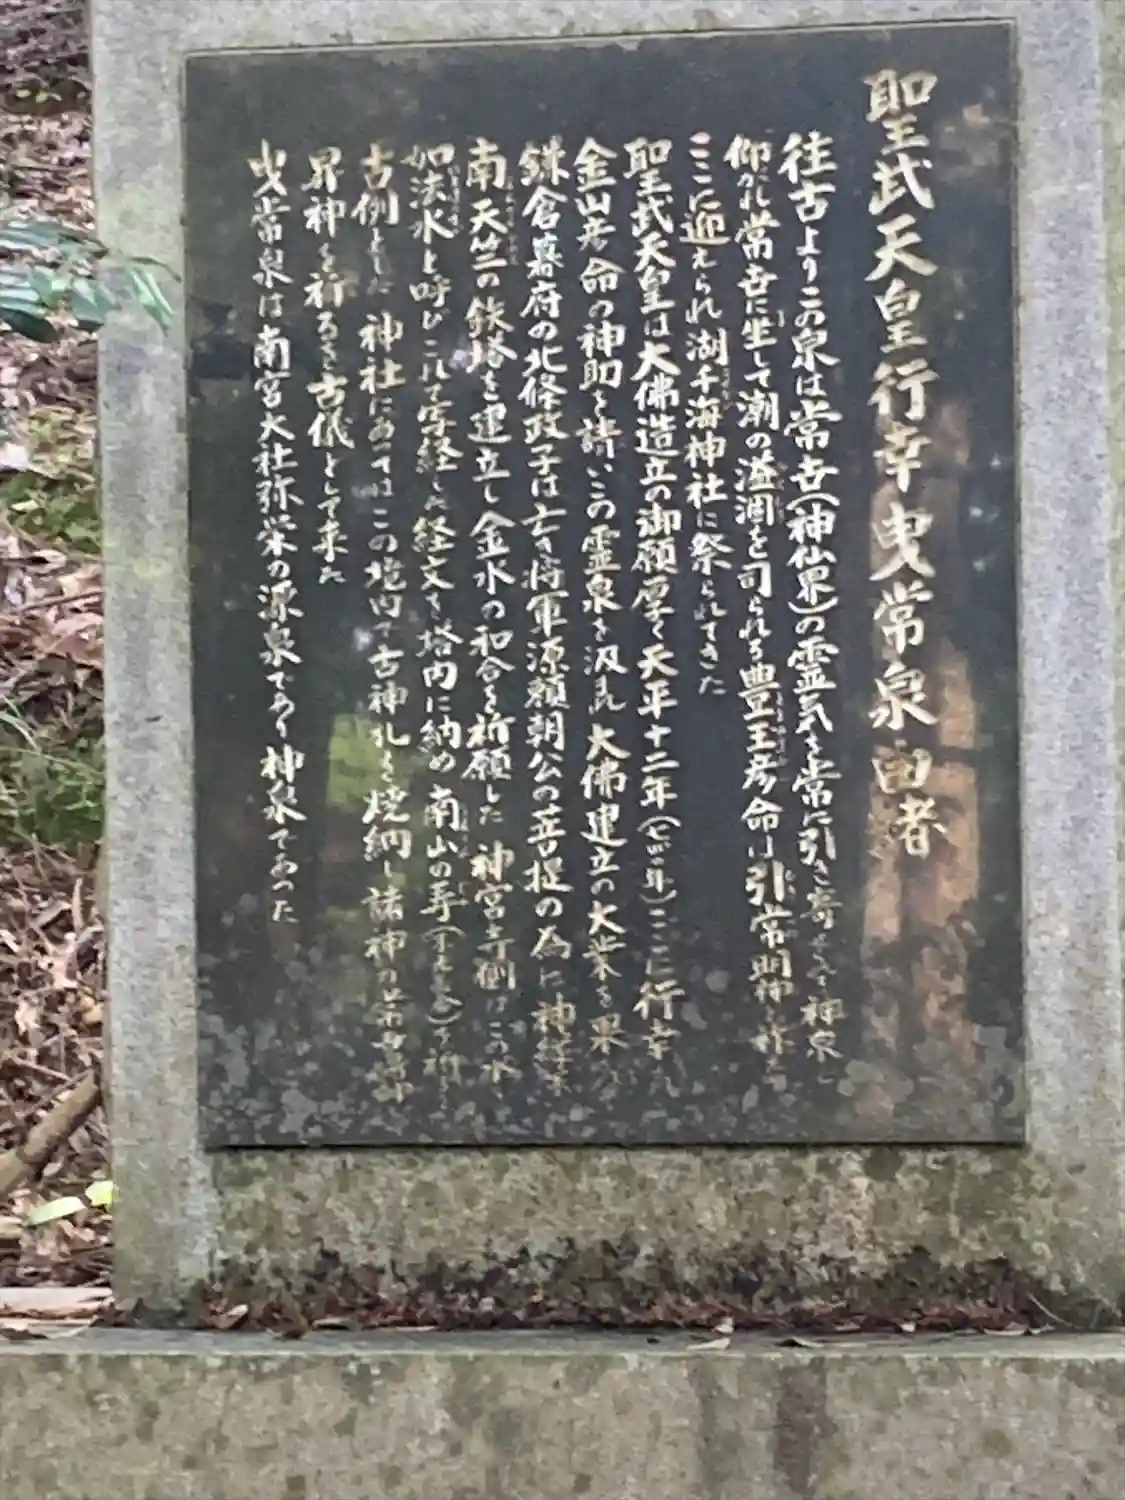 聖武天皇行幸曳常泉由者
往古よりこの泉は常世(神仙界)の霊気を常に引き寄せる神泉と
仰がれ常世に生して潮の溢涸を司られる豊玉彦命は引常明神と称え
ここに迎えられ湖千海神社に祭られてきた
聖武天皇は大佛造立の御願厚く天平十二年(七四〇年)ここに行幸され
金山彦命の神助を請いこの霊泉を汲まれ大佛建立の大業を果
鎌倉幕府の北條政子は亡き将軍源頼朝公の菩提の為に神
南天竺の鉄塔を建立し金水の和合を祈願した神宮寺側はこの水
如法水と呼びこれで写経した経文を塔内に納め南山の寿()を祈
古例とした神社にあってはこの境内で古神札を焼納し諸神の
昇神を祈るを古儀として来た
曳常泉は南宮大社弥栄の源泉であり神泉であった